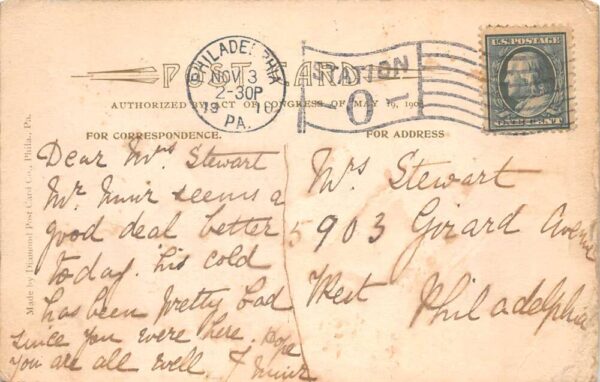 POST CARD
AUTHORIZED BY ACT OF CONGRESS OF MAY 19, 1908
PHILADELPHIA
NOV 3
2-30P
1910
PA.
STATION
O
U.S. POSTAGE
ONE CENT
FOR CORRESPONDENCE.
FOR ADDRESS
Dear Mrs Stewart
Mr Muir seems a
good deal better
today. his cold
has been pretty bad
since you were here. hope
you are all well. J Muir
Mrs Stewart
5903 Girard Avenue
West Philadelphia
Made by Diamond Post Card Co., Phila., Pa.